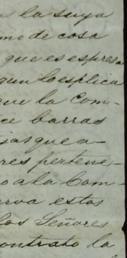 a la suya
mo de cosa
que es espresa
gun lo esplica
que la Com-
ce barras
jas que a-
res pertene-
o a la Com-
erva estos
los Señores
contrato la